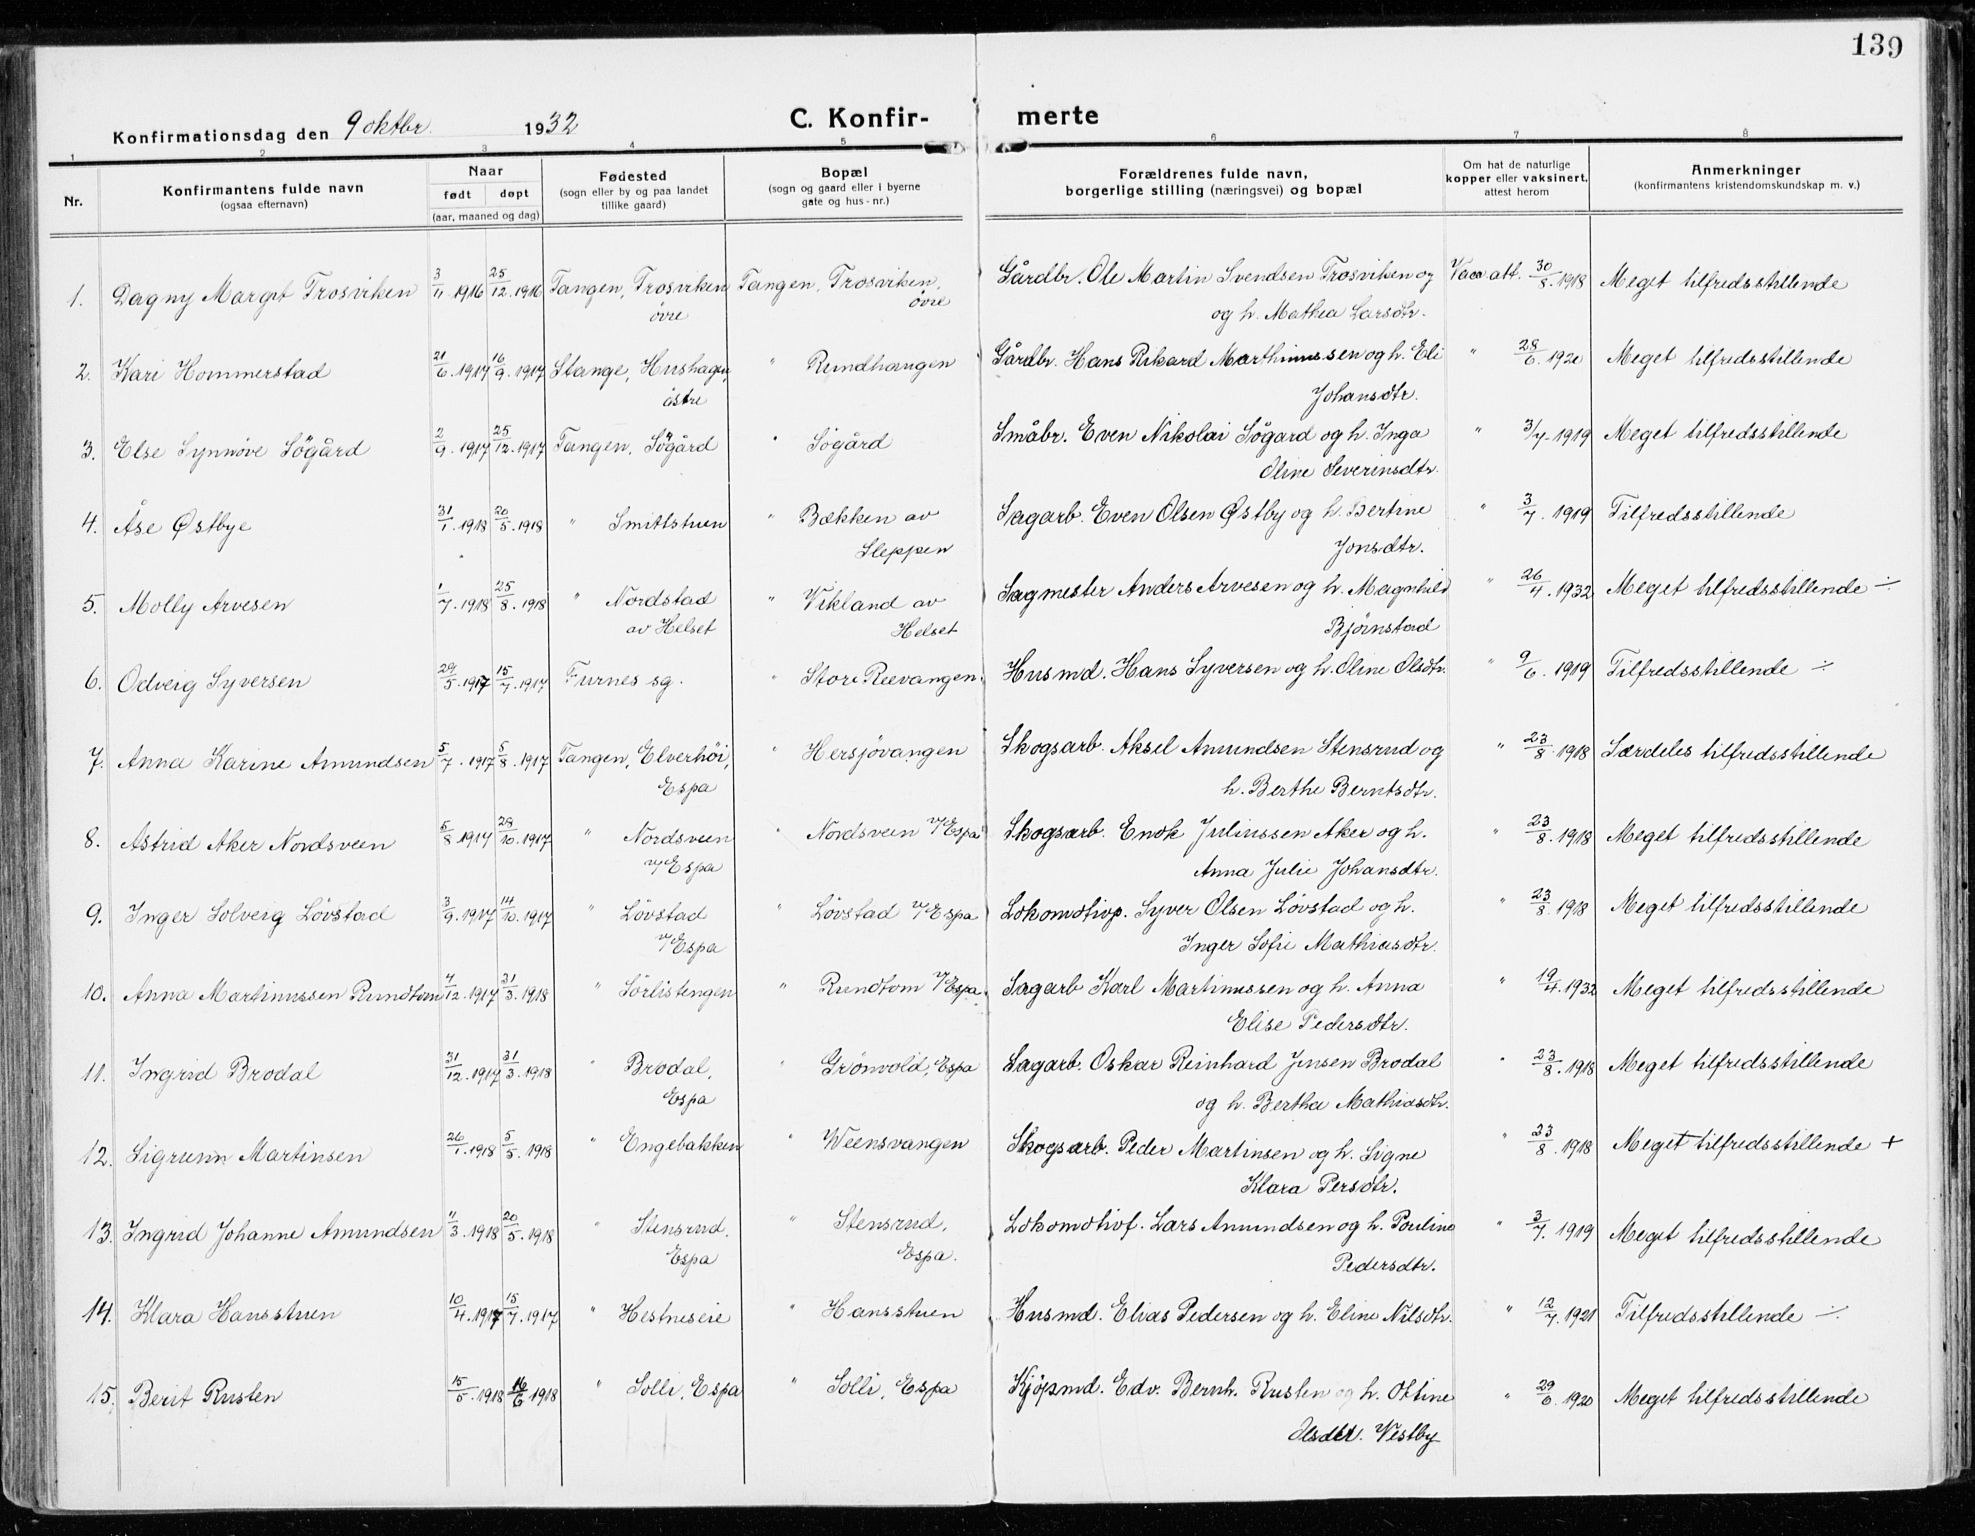 139
Konfirmationsdag den 9 oktbr. 1932 C. Konfir- merte
1 2 3 4 5 6 7 8
Nr. Konfirmantens fulde navn (ogsaa efternavn) Naar født døpt (aar, maaned og dag) Fødested (sogn eller by og paa landet tillike gaard) Bopæl (sogn og gaard eller i byerne gate og hus-nr.) Forældrenes fulde navn, borgerlige stilling (næringsvei) og bopæl Om hat de naturlige kopper eller vaksinert, attest herom Anmerkninger (konfirmantens kristendomskundskap m. v.)
1. Dagny Margit Trosviken 3/11 1916 25/12 1916 Tangen, Trosviken Tangen, Trosviken, Gårdbr. Ole Martin Svendsen Trosviken og Vacc att. 30/8. 1918 Meget tilfredsstillende
øvre øvre og h. Mathea Larsdtr.
2. Kari Hommerstad 21/6. 1917 16/9. 1917 Stange, Hushagen, " Rundhaugen Gårdbr. Hans Rikard Marthinussen og h. Eli " 28/6. 1920 Meget tilfredsstillende
østre Johansdtr.
3. Else Synnöve Sögård 2/9. 1917 25/12. 1917 Tangen, Sögård " Sögård Småbr. Even Nikolai Sögard og h. Inga " 3/7. 1919 Meget tilfredsstillende
Oline Severinsdtr.
4. Åse Østbye 31/1. 1918 20/5. 1918 " Smittstuen " Bækken av Sagarb. Even Olsen Østby og h. Bertine " 3/7. 1919 Tilfredsstillende
Sleppen Jonsdtr.
5. Molly Arvesen 1/7. 1918 25/8. 1918 " Nordstad " Vikland av Sagmester Anders Arvesen og h. Magnhild " 26/4. 1932 Meget tilfredsstillende ÷
av Helset Helset Bjørnstad
6. Odveig Syversen 29/5. 1917 15/7. 1917 Furnes sg. " Store Rævangen. Husmd. Hans Syversen og h. Oline Olsdtr. " 9/6. 1919 Tilfredsstillende ÷
7. Anna Karine Amundsen 5/7. 1917 5/8. 1917 Tangen, Elverhöi, " Hersjövangen Skogsarb. Aksel Amundsen Stensrud og " 23/8 1918 Særdeles tilfredsstillende
Espa h. Berthe Berntsdtr.
8. Astrid Aker Nordsveen 5/8 1917 28/10. 1917 " Nordsveen " Nordsveen v/Espa Skogsarb. Enok Juliussen Aker og h. " 23/8. 1918 Meget tilfredsstillende
v/Espa Anna Julie Johansdtr.
9. Inger Solveig Lövstad 3/9. 1917 14/10. 1917 " Lövstad " Lövstad v/Espa Lokomotivp. Syver Olsen Lövstad og h. " 23/8. 1918 Meget tilfredsstillende
v/Espa Inger Sofie Mathiasdtr.
10. Anna Martinussen Rundtom 4/12. 1917 31/3. 1918 " Sörlistengen " Rundtom v/Espa. Sagarb Karl Martinussen og h. Anna " 19/4. 1932 Meget tilfredsstillende
Elise Pedersdtr.
11. Ingrid Brodal 31/12. 1917 31/3. 1918 " Brodal, " Grönvold, Espa Sagarb. Oskar Reinhard Jensen Brodal " 23/8. 1918 Meget tilfredsstillende
Espa og h. Bertha Mathiasdtr.
12. Sigrunn Martinsen 26/1. 1918 5/5. 1918 " Engebakken " Weensvangen Skogsarb. Peder Martinsen og h. Signe " 23/8. 1918 Meget tilfredsstillende +
Klara Persdtr.
13. Ingrid Johanne Amundsen 11/3. 1918 20/5. 1918 " Stensrud, " Stensrud, Lokomotivf. Lars Amundsen og h. Pouline " 3/7. 1919 Meget tilfredsstillende
Espa Espa. Pedersdtr.
14. Klara Hansstuen 10/4. 1917 15/7. 1917 " Hestneseie " Hansstuen Husmd. Elias Pedersen og h. Eline Nilsdtr. " 12/7. 1921 Tilfredsstillende ÷
15. Berit Rusten 15/5. 1918 16/6 1918 " Solli, Espa " Solli, Espa Kjöpmd. Edv. Bernh. Rusten og h. Ottine " 29/6. 1920 Meget tilfredsstillende
Olsdtr. Westby